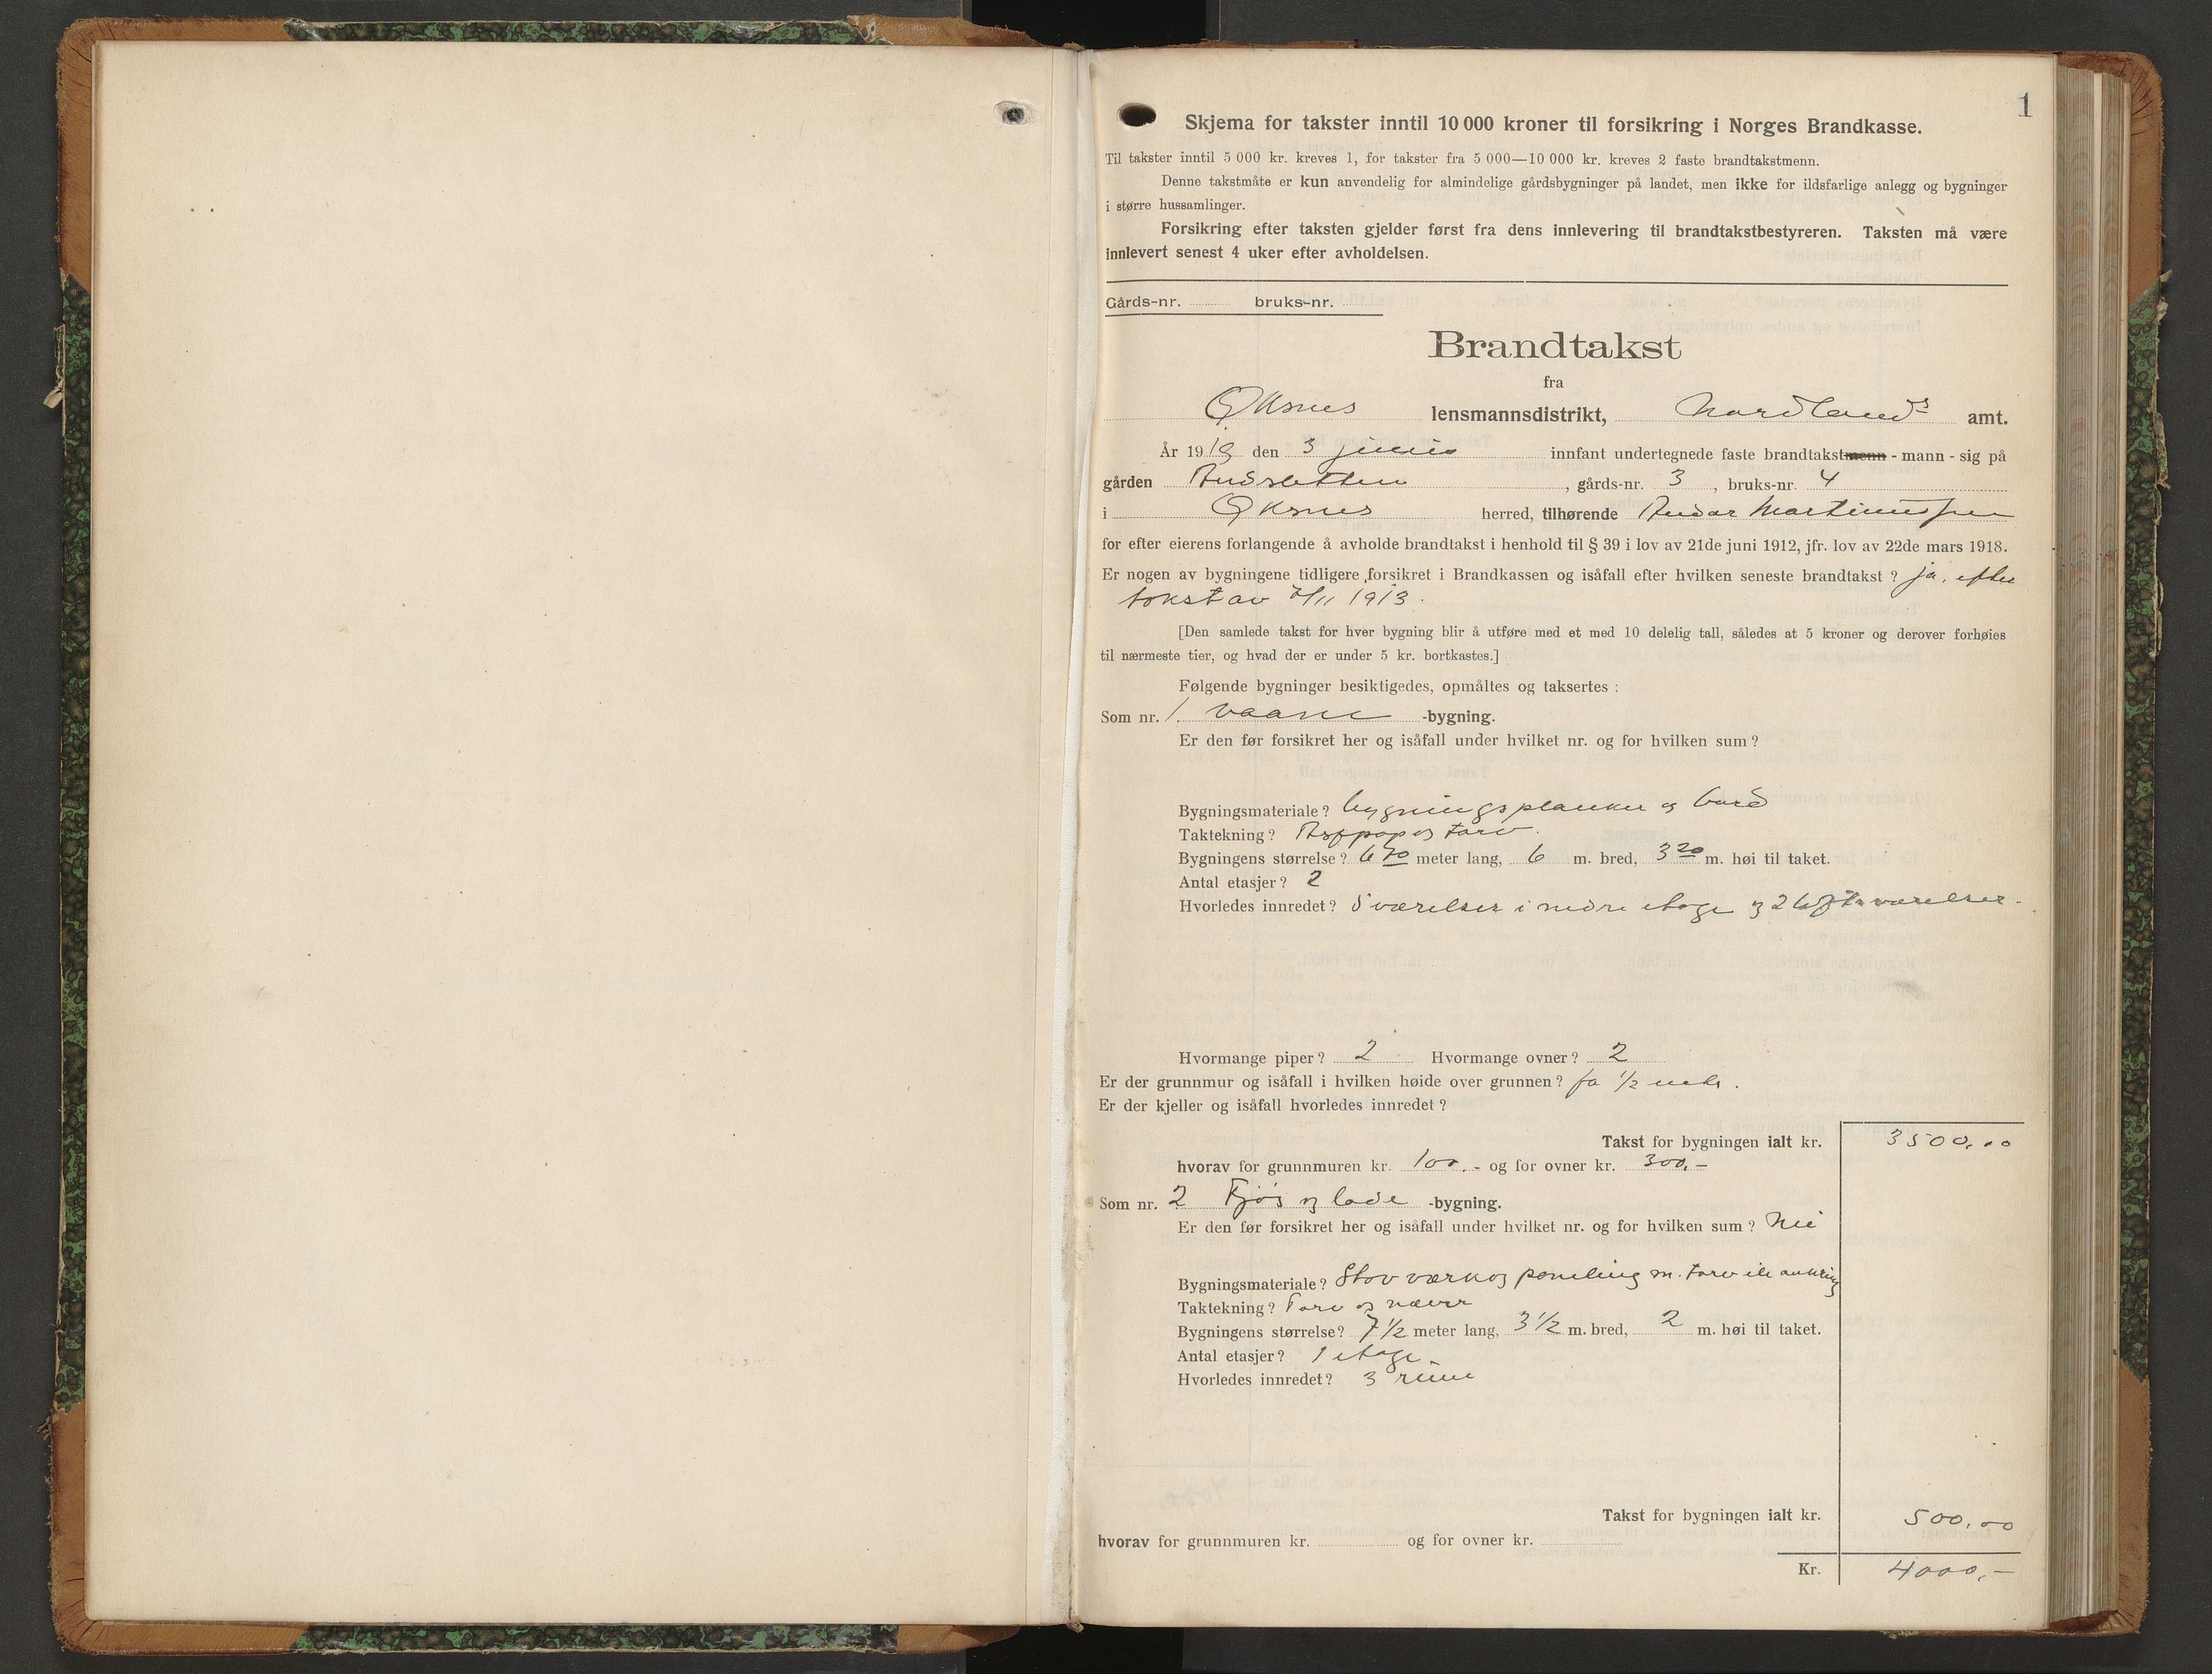 1
Skjema for takster inntil 10 000 kroner til forsikring i Norges Brandkasse.
Til takster inntil 5 000 kr. kreves 1, for takster fra 5 000—10 000 kr. kreves 2 faste brandtakstmenn.
Denne takstmåte er kun anvendelig for almindelige gårdsbygninger på landet, men ikke for ildsfarlige anlegg og bygninger
i større hussamlinger.
Forsikring efter taksten gjelder først fra dens innlevering til brandtakstbestyreren. Taksten må være
innlevert senest 4 uker efter avholdelsen.
Gårds-nr. bruks-nr.
Brandtakst
fra
Øksnes lensmannsdistrikt, Nordlands amt.
År 1919 den 3 juni innfant undertegnede faste brandtakstmenn - mann - sig på
gården , gårds-nr. 3 , bruks-nr. 4
i Øksnes herred, tilhørende Martinussen
for efter eierens forlangende å avholde brandtakst i henhold til § 39 i lov av 21de juni 1912, jfr. lov av 22de mars 1918.
Er nogen av bygningene tidligere forsikret i Brandkassen og isåfall efter hvilken seneste brandtakst? ja, efter
takst av /11 1913.
[Den samlede takst for hver bygning blir å utføre med et med 10 delelig tall, således at 5 kroner og derover forhøies
til nærmeste tier, og hvad der er under 5 kr. bortkastes.]
Følgende bygninger besiktigedes, opmåltes og taksertes :
Som nr. 1. vaane -bygning.
Er den før forsikret her og isåfall under hvilket nr. og for hvilken sum?
Bygningsmateriale? bygningsplanker og bord
Taktekning? Asfpap og torv.
Bygningens størrelse? 6 70 meter lang, 6 m. bred, 3 20 m. høi til taket.
Antal etasjer? 2
Hvorledes innredet? 5 værelser i nedre etage og 2 loftsværelser.
Hvormange piper? 2 Hvormange ovner? 2
Er der grunnmur og isåfall i hvilken høide over grunnen? ja 1/2 meter.
Er der kjeller og isåfall hvorledes innredet?
Takst for bygningen ialt kr. 3500,00
hvorav for grunnmuren kr. 100.- og for ovner kr. 300,-
Som nr. 2 Fjøs og lade -bygning.
Er den før forsikret her og isåfall under hvilket nr. og for hvilken sum? Nei
Bygningsmateriale? Stavværk og paneling m. torv
Taktekning? Torv og næver
Bygningens størrelse? 7 1/2 meter lang, 3 1/2 m. bred, 2 m. høi til taket.
Antal etasjer? 1 etage
Hvorledes innredet? 3 rum
Takst for bygningen ialt kr. 500,00
hvorav for grunnmuren kr. og for ovner kr.
Kr. 4000,-